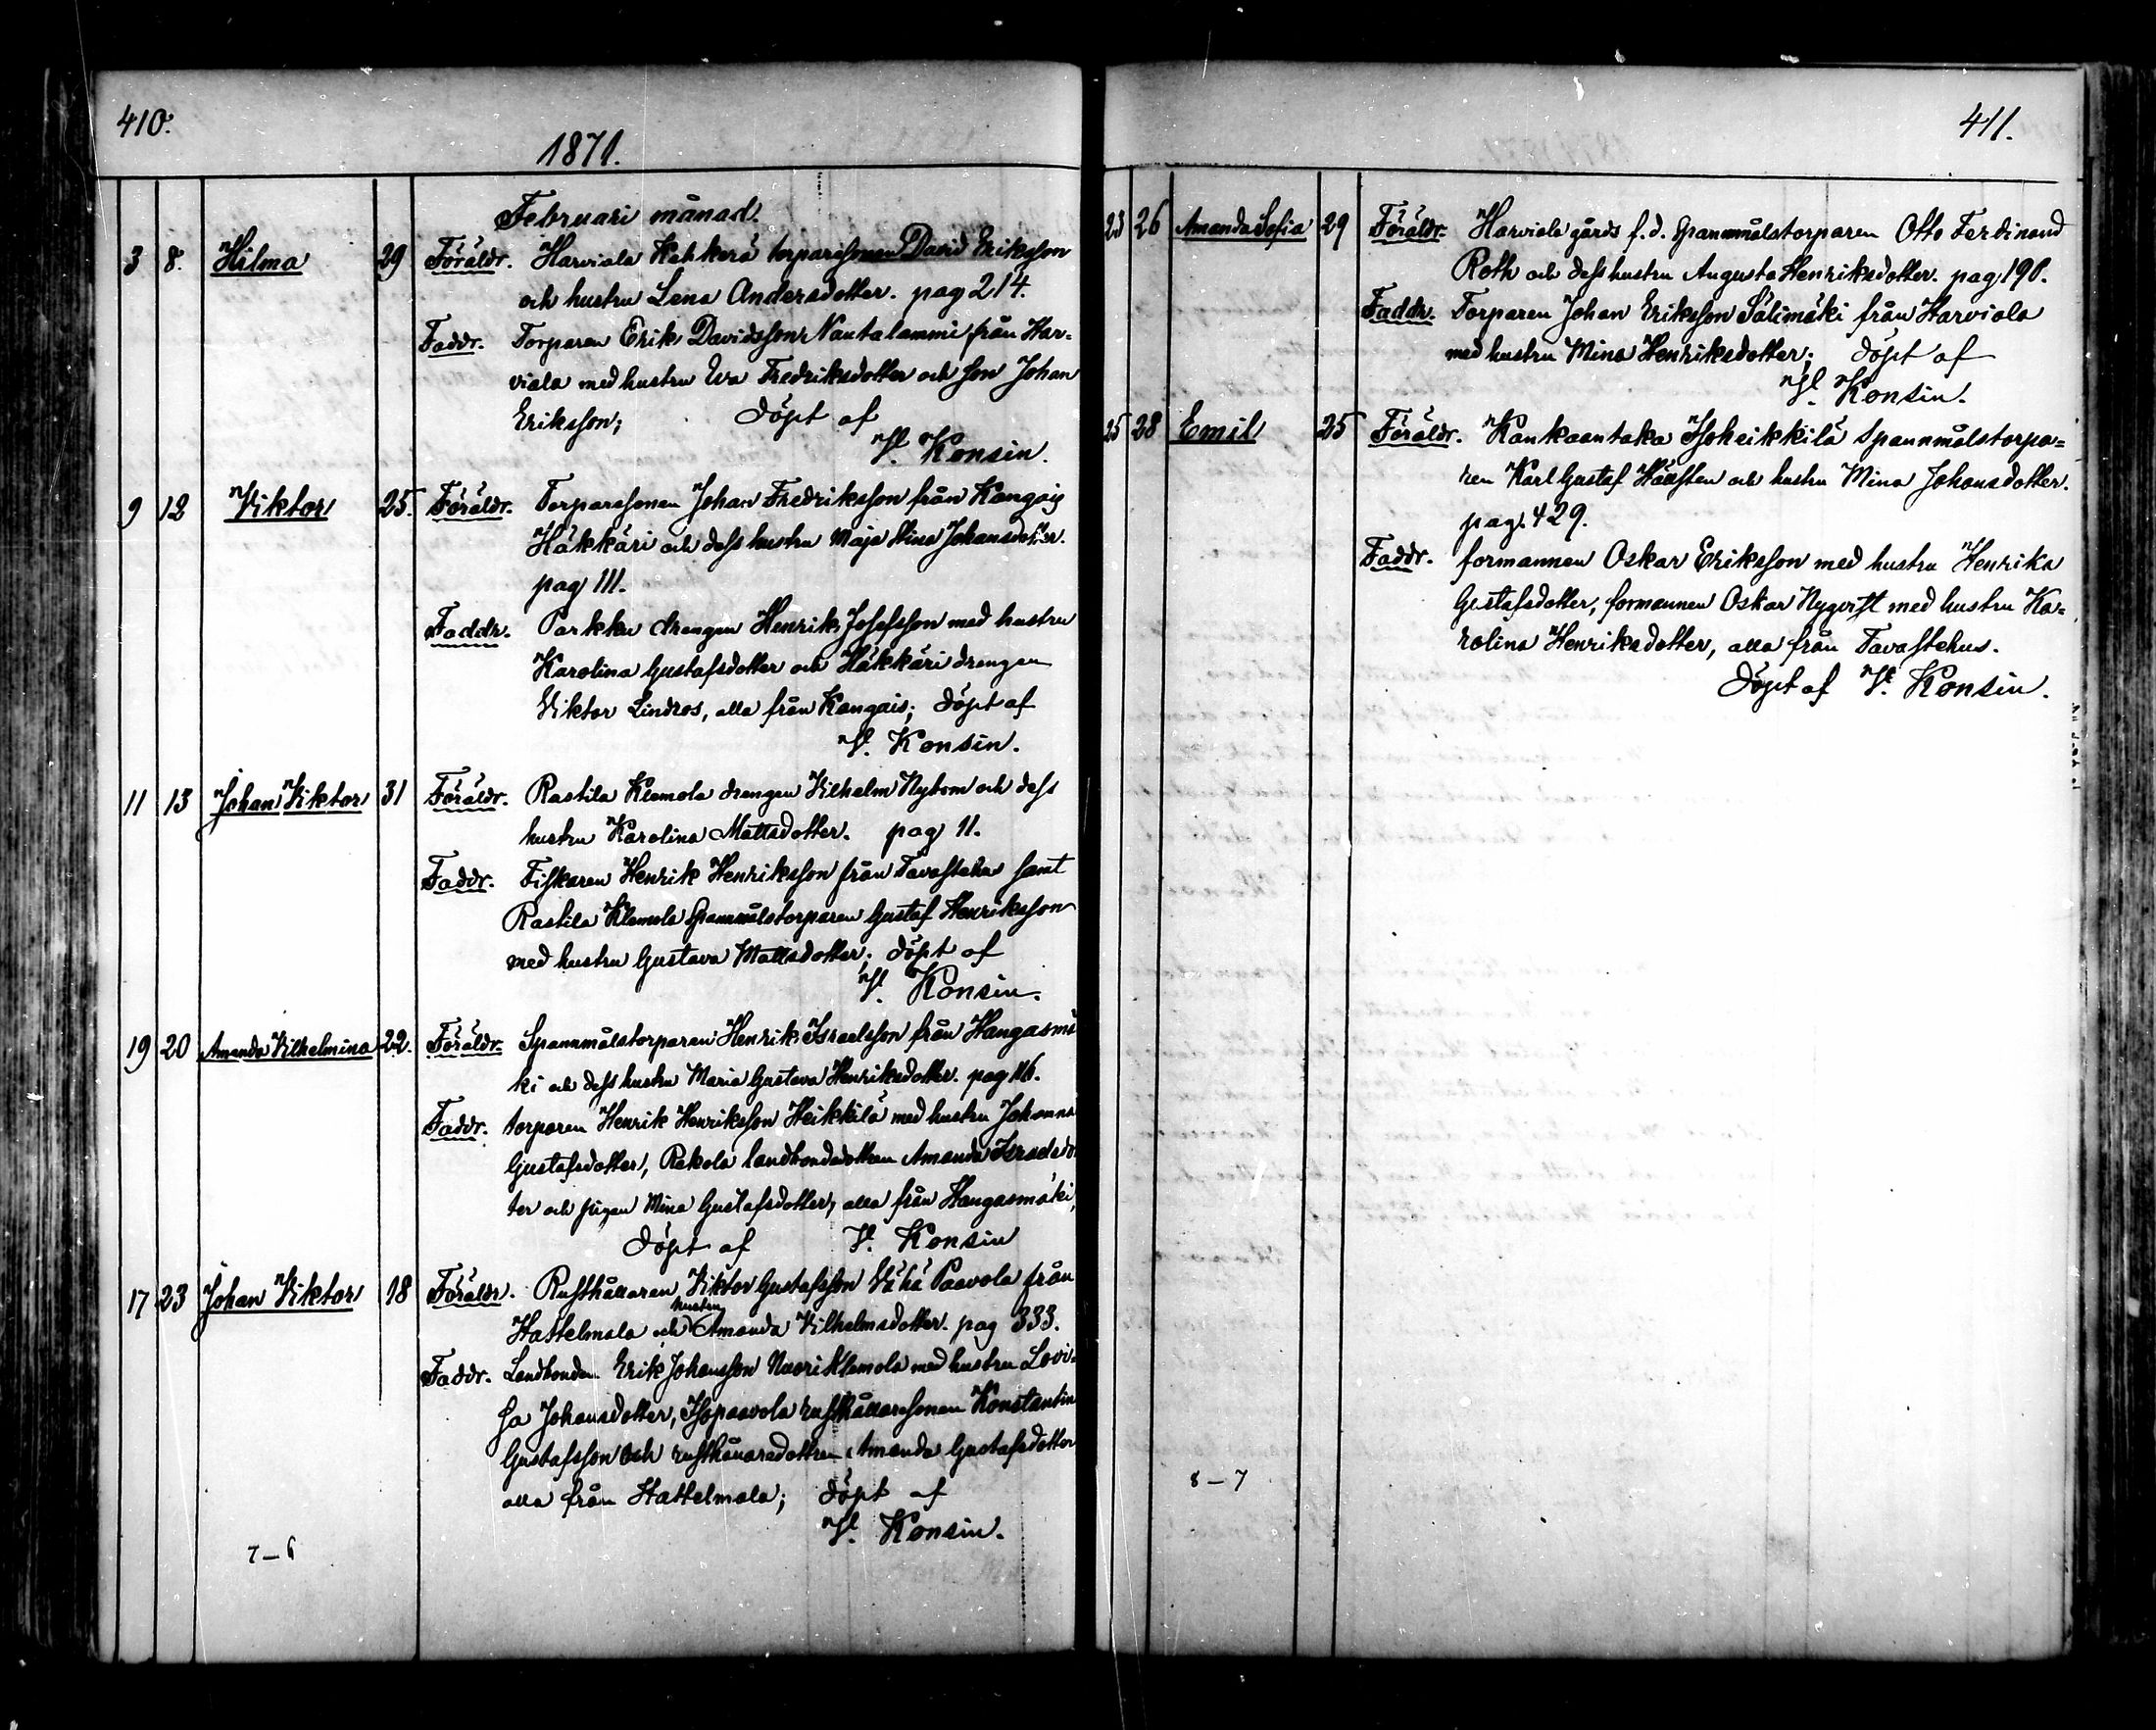 410.
1871.
Februari månad.
3 8. Hilma 29 Föräldr. Harviala Kahkerä torparesonen David Eriksson
och hustru Lena Andersdotter. pag 214.
Faddr. Torparen Erik Davidsson Nautalammi från Har-
viala med hustru Eva Fredriksdotter och son Johan
Eriksson; döpt af
V. Konsin.
9 12 Viktor 25. Föräldr. Torparesonen Johan Fredriksson från Kangais
Häkkäri och dess hustru Maja Stina Johansdotter.
pag 111.
Faddr. Parkku drengen Henrik Josefsson med hustru
Karolina Gustafsdotter och Häkkäri drengen
Viktor Lindros, alla från Kangais; döpt af
V. Konsin.
11 13 Johan Viktor 31 Föräldr. Rastila Klemola drengen Vilhelm Nybom och dess
hustru Karolina Mattsdotter. pag 11.
Faddr. Fiskaren Henrik Henriksson från Tavastehus samt
Rastila Klemola Spannmålstorparen Gustaf Henriksson
med hustru Gustava Mattsdotter; döpt af
V. Konsin.
19 20 Amanda Vilhelmina 22. Föräldr. Spannmålstorparen Henrik Israelsson från Hangasmä
ki och dess hustru Maria Gustava Henriksdotter. pag 116.
Faddr. torparen Henrik Henriksson Heikkilä med hustru Johanna
Gustafsdotter, Rekola landbondedottren Amanda Israelsdot
ter och pigan Mina Gustafsdotter, alla från Hangasmäki,
döpt af V. Konsin
17 23 Johan Viktor 18 Föräldr. Rusthållaren Viktor Gustafsson Vähä Paavola från
Hattelmala och hustru Amanda Vilhelmsdotter. pag 333.
Faddr. Landbonden Erik Johansson Nuori Klemola med hustru Lovi-
sa Johansdotter, Isopaavola rusthållaresonen Konstantin
Gustafsson och rusthållaredottren Amanda Gustafsdotter
alla från Hattelmala; döpt af
V. Konsin.
7–6
411.
23 26 Amanda Sofia 29 Föräldr. Harviala gårds f.d. Spannmålstorparen Otto Ferdinand
Roth och dess hustru Augusta Henriksdotter. pag 190.
Faddr. Torparen Johan Eriksson Sälimäki från Harviala
med hustru Mina Henriksdotter; döpt af
V. Konsin.
25 28 Emil 25 Föräldr. Kankaantaka Isoheikkilä Spannmålstorpa-
ren Karl Gustaf Hällsten och hustru Mina Johansdotter.
pag. 429.
Faddr. formannen Oskar Eriksson med hustru Henrika
Gustafsdotter, formannen Oskar Nyqvist med hustru Ka-
rolina Henriksdotter, alla från Tavastehus.
Döpt af V. Konsin.
8–7